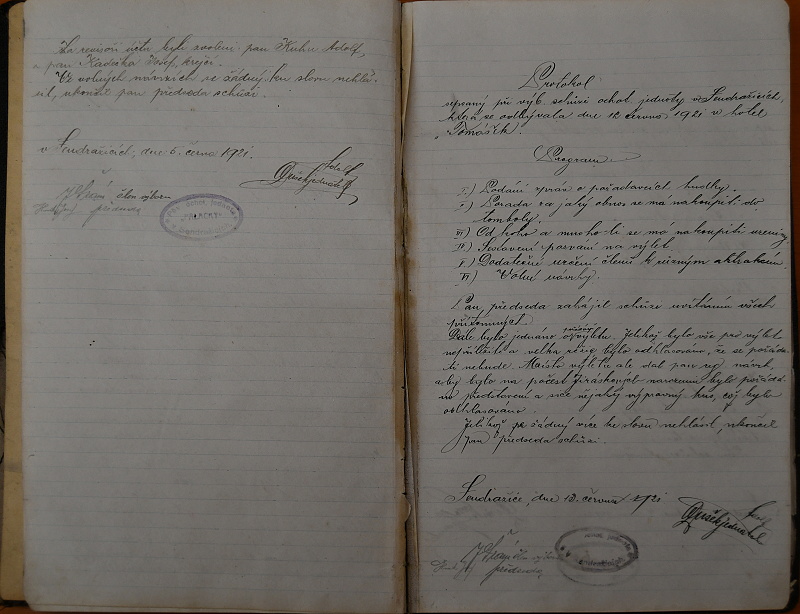 Za revisory účtů byli zvoleni pan Kuhn Adolf,
a pan Kadečka Josef, krejčí.
Ve volných návrzích se žádný ku slovu nehlá-
sil, ukončil pan předseda schůzi.
v Sendražicích, dne 5. června 1921.
Adolf
Dušek jednatel
člen výboru
předseda
Protokol
sepsaný při výb. schůzi ochot. jednoty v Sendražicích,
která se odbývala dne 12 června 1921 v hotel
"Tomášek".
Program
I.) Podání zpráv o pořadavcích hudby.
II.) Porada za jaký obnos se má nakoupiti do
tomboly.
III) Od koho a mnoho-li se má nakoupiti uzeniny
IV) Sestavení pozvání na výlet
V) Dodatečné určení členů k různým atrakcím.
VI) Volné návrhy.
Pan předseda zahájil schůze uvítáním všech
přítomných.
Dále bylo jednáno o výletu. Jelikož bylo vše pro výlet
a velká režie bylo odhlasováno, že se pořáda-
ti nebude. Místo výletu ale dal pan návrh,
aby bylo na počest Jiráskových narozenin bylo pořádá-
no představení a sice nějaký výpravný kus, což bylo
odhlasováno.
Jelikož se žádný více ke slovu nehlásil, ukončil
pan předseda schůzi.
Sendražice, dne 12. června 1921
Adolf
Dušek jednatel
předseda